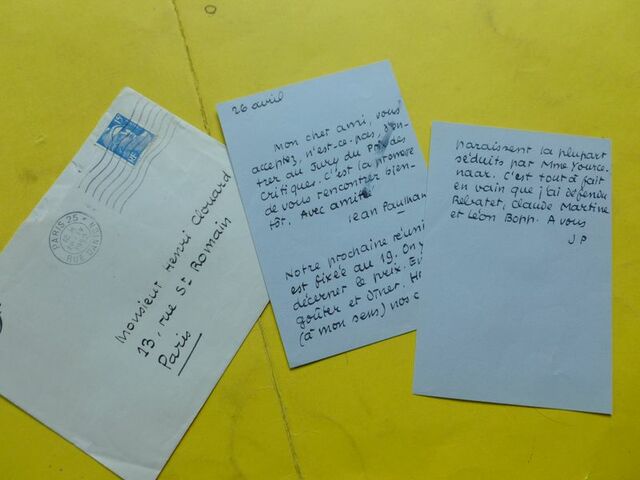 PARIS 25
RUE DANTON
Monsieur Henri Clouard
13, rue St Romain
Paris
26 avril
Mon cher ami, vous
acceptez, n'est-ce-pas, d'en-
trer au Jury du Prix des
Critiques. C'est la promesse
de vous rencontrer bien-
tôt. Avec amitié
Jean Paulhan
Notre prochaine réuni
est fixée au 19. On y
décerner le prix. En
goûter et dîner. H
(à mon sens) nos c
paraissent la plupart
séduits par Mme Yource-
naar. C'est tout à fait
en vain que j'ai défendu
Rebatet, Claude Martine
et Léon Bopp. A vous
J P